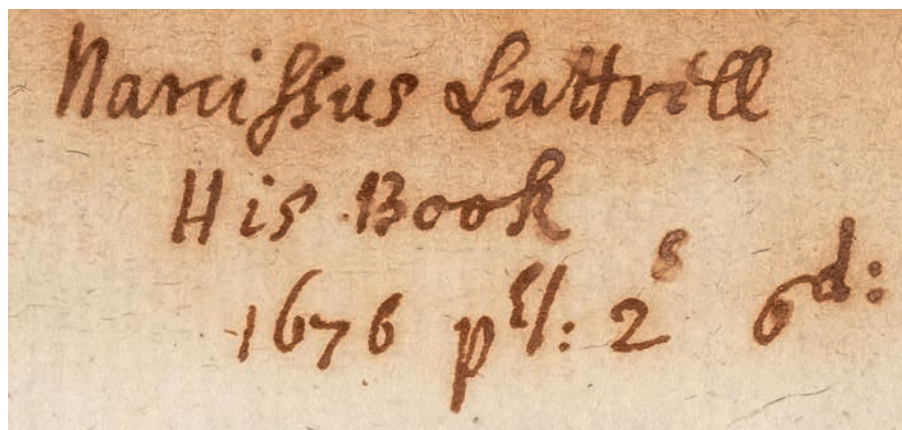 Narcissus Luttrell
His Book
1676 p^{ct}: 2^{s} 6^{d}: